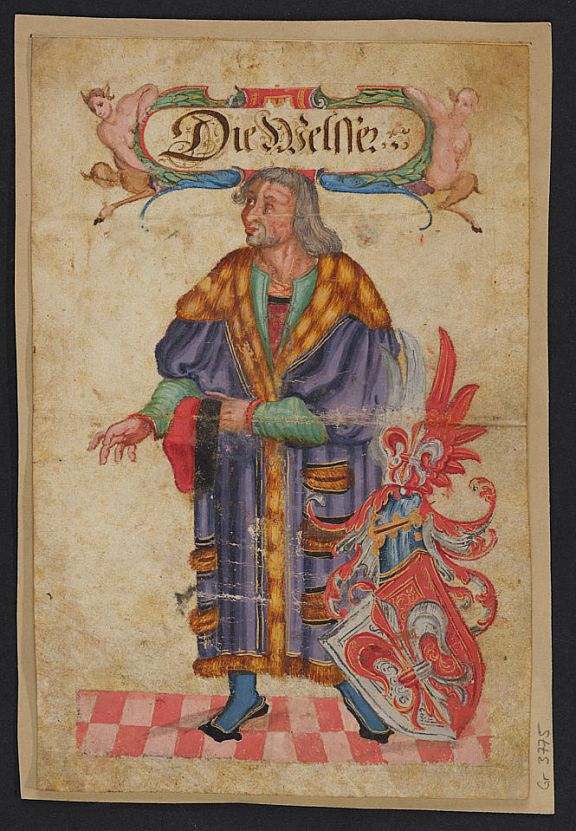 Die Welſſer
Gr 3775